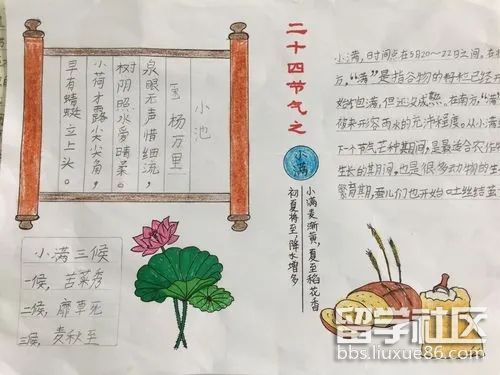 小池
杨万里
泉眼无声惜细流,
树阴照水爱晴柔。
小荷才露尖尖角,
早有蜻蜓立上头。
二十四节气之
小满
小满麦渐黄,夏至稻花香
初夏将至,降水增多
小满,时间点在5月20~22日之间,在
方,“满”是指谷物的籽粒已经
始饱满,但还没成熟。在南方,“满”
被来形容雨水的充沛程度。从小满
下一个节气芒种期间,是最适合农作
生长的期间,也是很多动物的生
繁育期,蚕儿们也开始吐丝结茧
小满三候
一候,苦菜秀
二候,靡草死
三候,麦秋至
留学社区
bbs.liuxue86.com